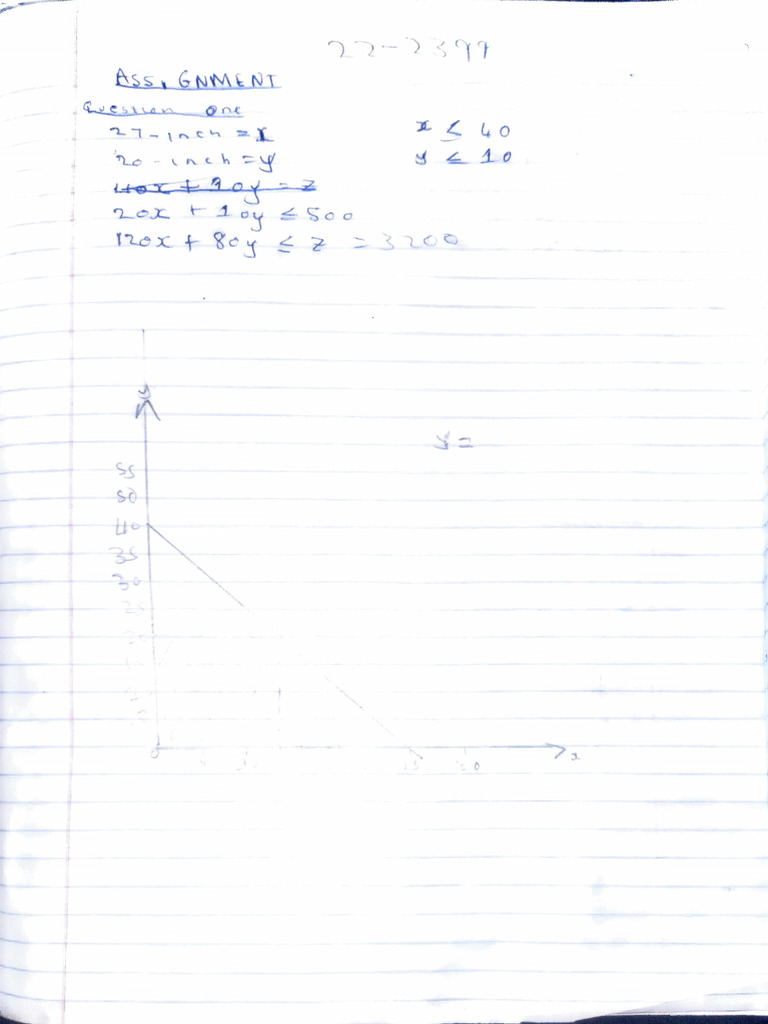 22-2399
ASSIGNMENT
Question one
27-inch = x
x ≤ 40
20-inch = y
y ≤ 10
20x + 10y ≤ 500
120x + 80y ≤ z = 3200
y
y =
55
50
40
35
30
25
20
0
x